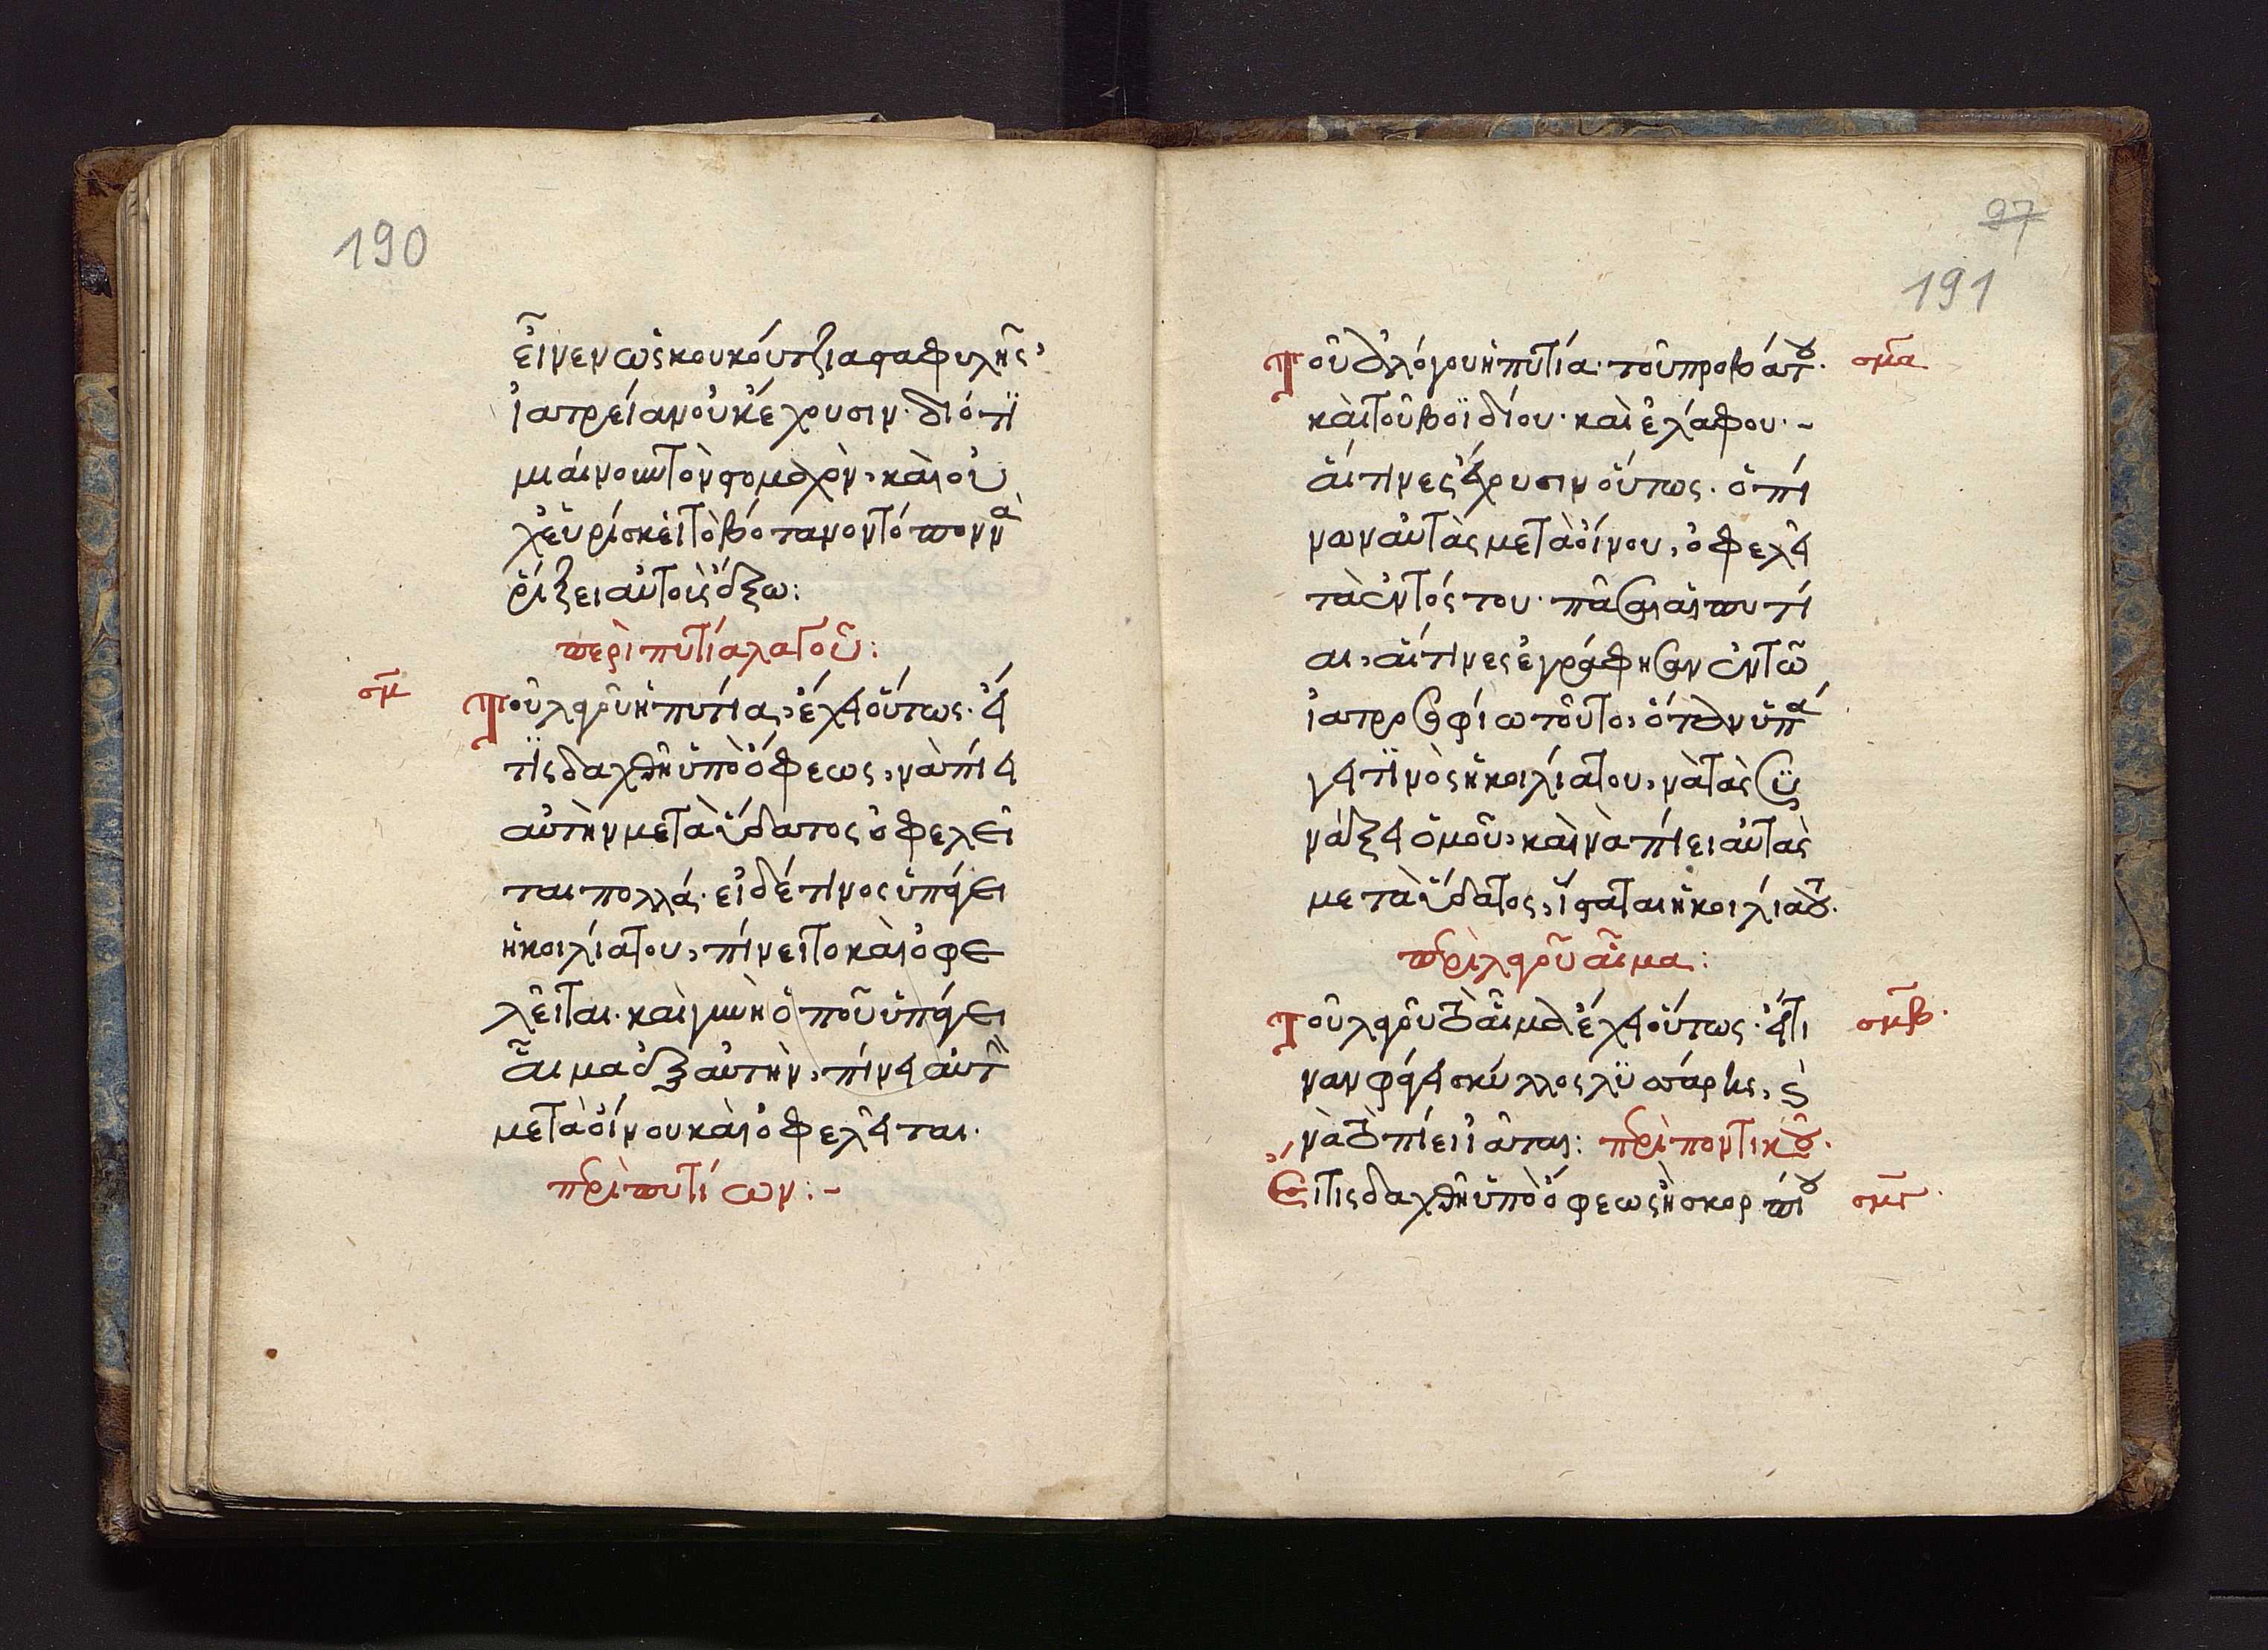 190
εἶνεν ὡς κουκούτζια σταφυλῆς,
ἰατρείαν οὐκ ἔχουσιν· διότϊ
μιαίνουν τὸν στομαχὸν, καὶ οὐ
χ εὑρίσκει τὸ βότανον τόπον νὰ
ρίξει αὐτοὺς ἔξω:
περὶ πυτία λαγοῦ:
σμ
Τοῦ λαγοῦ ἡ πυτία, ἔχει οὕτως· εἴ
τϊς δαχθῆ ὑπὸ ὄφεως, νὰ πίει
αὐτὴν μετὰ ὕδατος ὀφελεῖ
ται πολλά· εἰδέ τινος ὑπάγει
ἡ κοιλία του, πίνει το καὶ ὀφε
λεῖται. καὶ γυνὴ ὁποῦ ὑπάγει
αἷμα ἐξ αὐτὴν, πίνει αὐτὴν
μετὰ οἴνου καὶ ὀφελεῖται.
περὶ πυτίων:~
97
191
Τοῦ ἀλόγου ἡ πυτία· τοῦ προβάτου·
σμα
καὶ τοῦ βοϊδίου· καὶ ἐλάφου·~
αἵτινες ἔχουσιν οὕτως· ὁ πί
νων αὐτὰς μετὰ οἴνου, ὀφελεῖ
τὰ ἐντός του· πᾶσαι αἱ πυτί
αι, αἵτινες ἐγράφησαν ἐν τῶ
ἰατροσοφίω τοῦτο, ὅταν ὑπά
γει τϊνὸς ἡ κοιλία του, νὰ τὰς συ
νάξει ὁμοῦ, καὶ νὰ πίει αὐτὰς
μετὰ ὕδατος, ἵσταται ἡ κοιλία του.
περὶ λαγοῦ αἷμα:
Τοῦ λαγοῦ τὸ αἷμα ἔχει οὕτως· εἴ τι
σμβ·
ναν φάγει σκύλλος λϋσσάρης, καὶ
νὰ τὸ πίει ἰᾶται: περὶ ποντικοῦ.
Εἴ τις δαχθῆ ὑπὸ ὄφεως ἢ σκορπίου
σμγ·